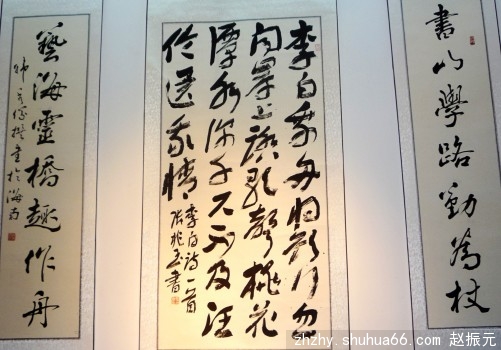 書山學路勤為杖
李白乘舟将欲行忽
闻岸上踏歌聲桃花
潭水深千尺不及汪
伦送我情
李白诗一首
書
藝海靈橋趣作舟
書於海南
zhzhy.shuhua66.com 赵振元